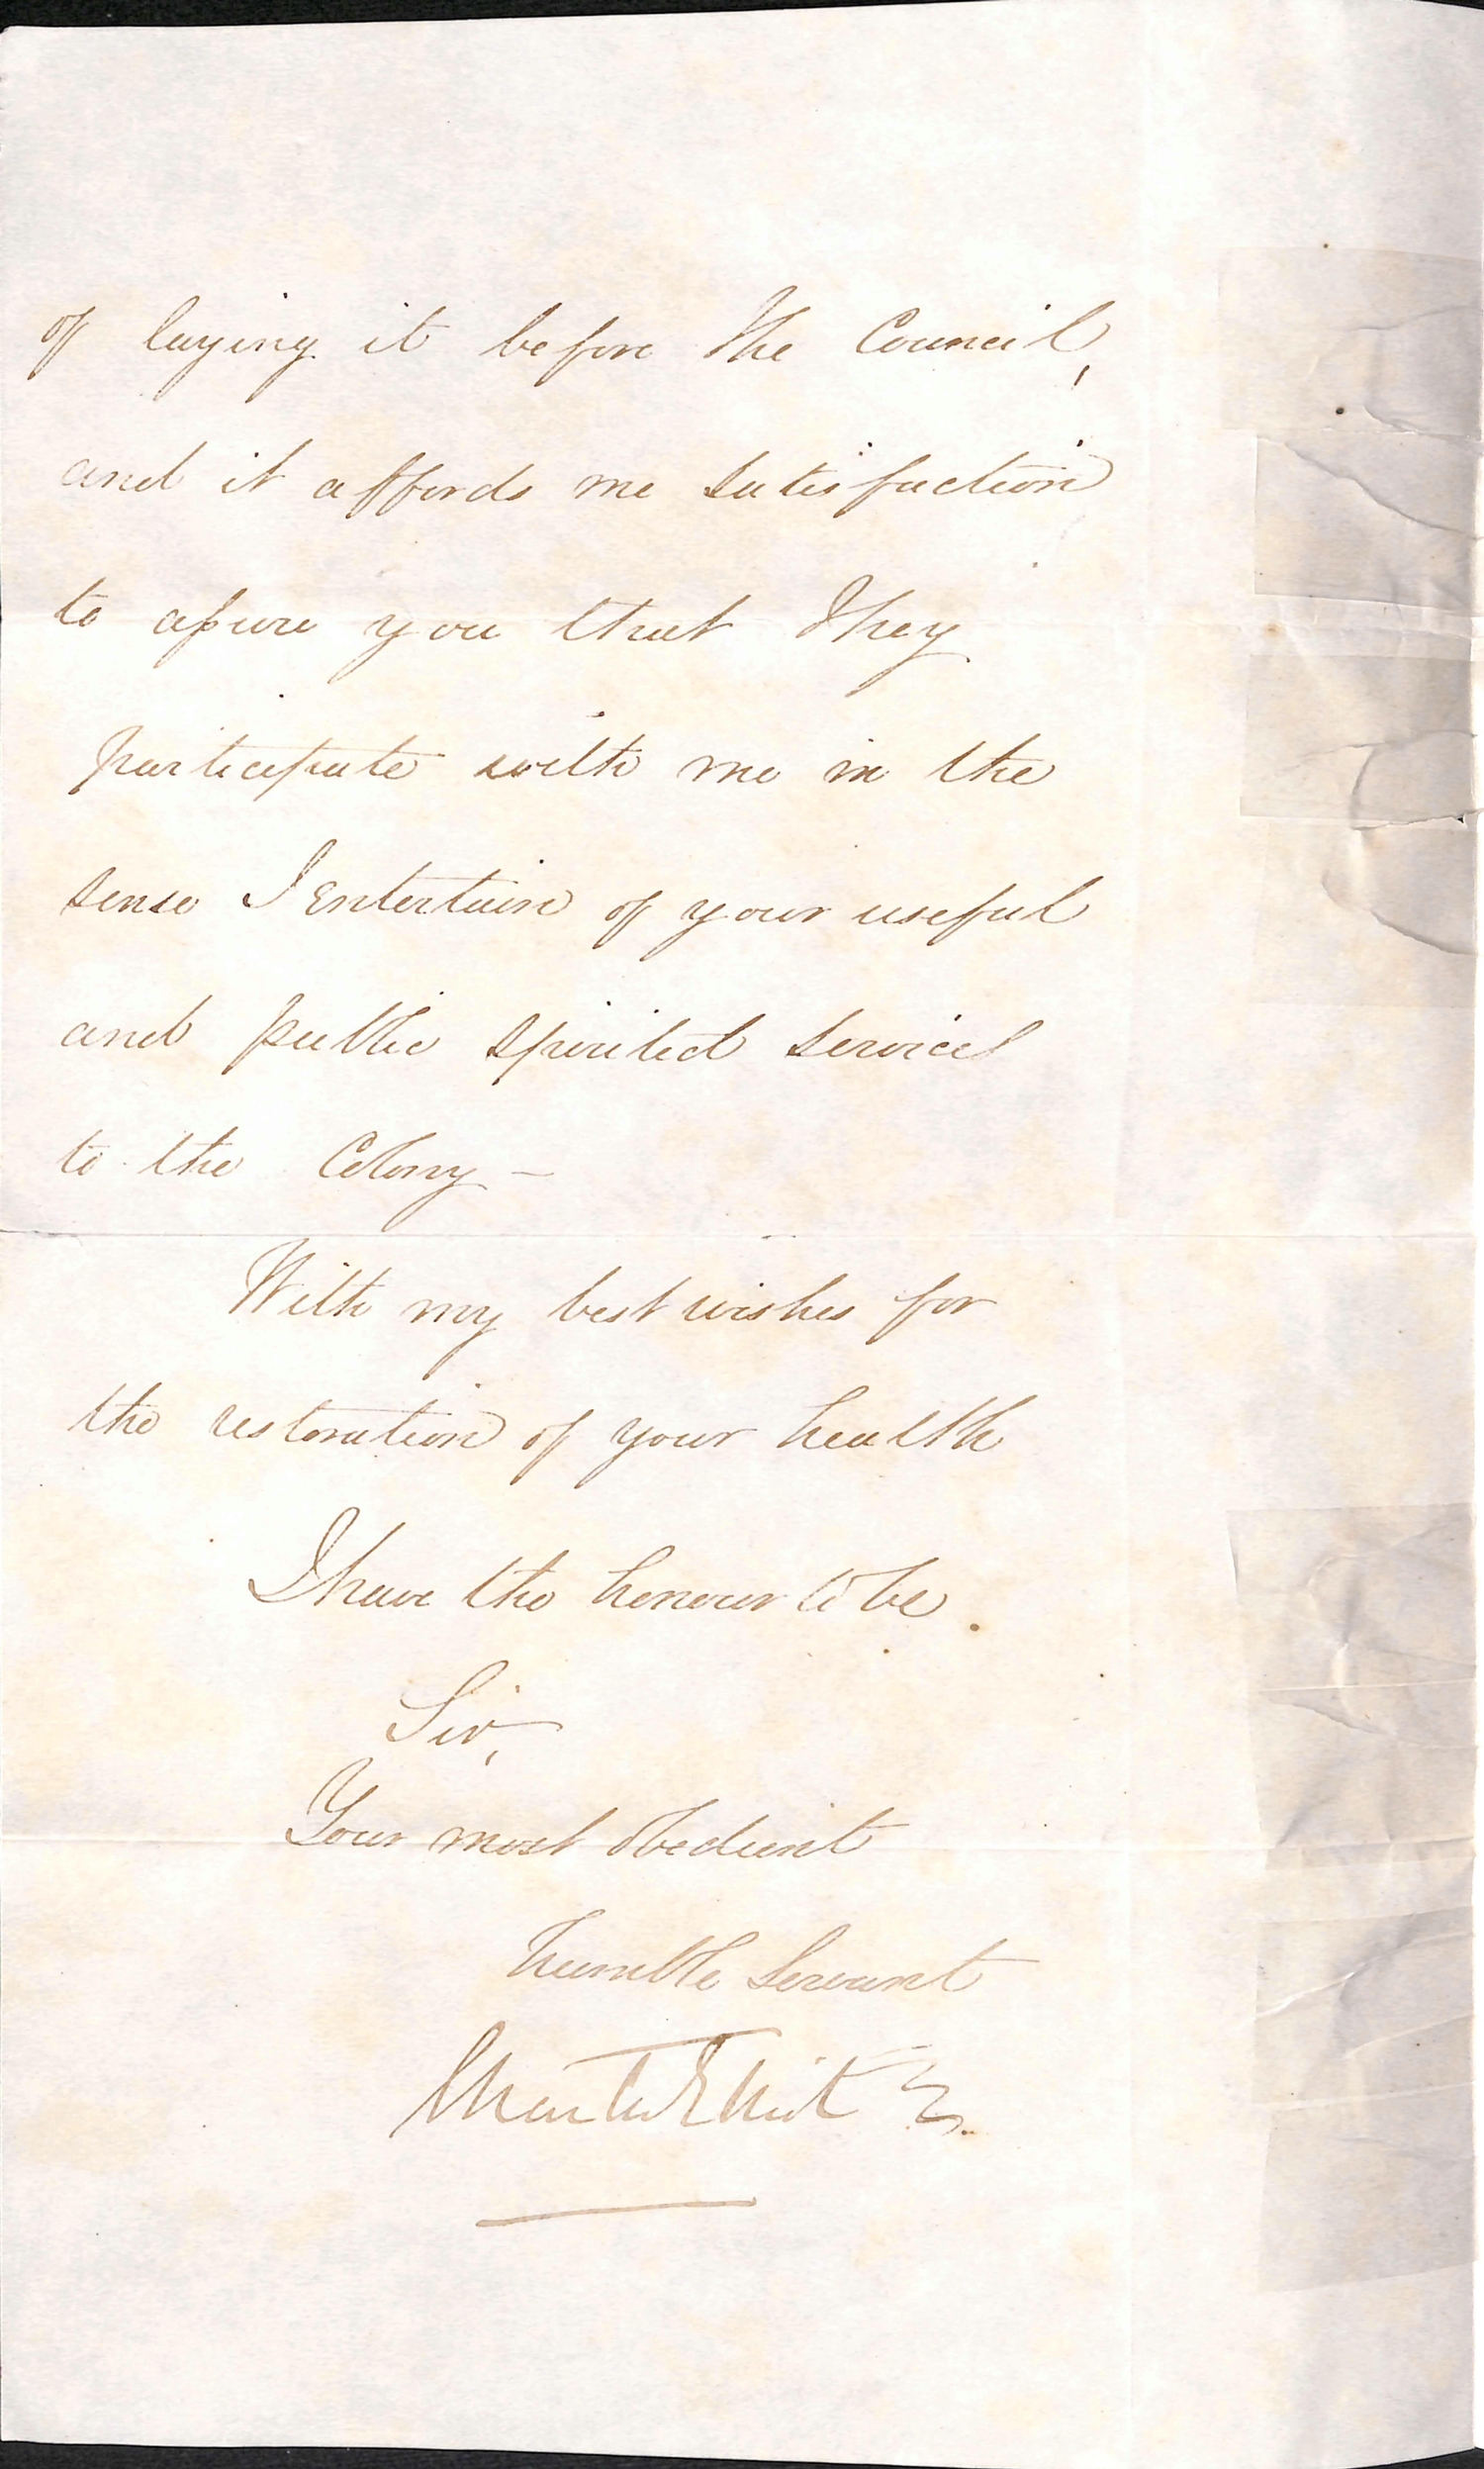 of laying it before the Council,
and it affords me satisfaction
to assure you that they
participate with me in the
sense I entertain of your useful
and public spirited services
to the Colony -
With my best wishes for
the restoration of your health
I have the honour to be.
Sir,
Your most obedient
humble Servant